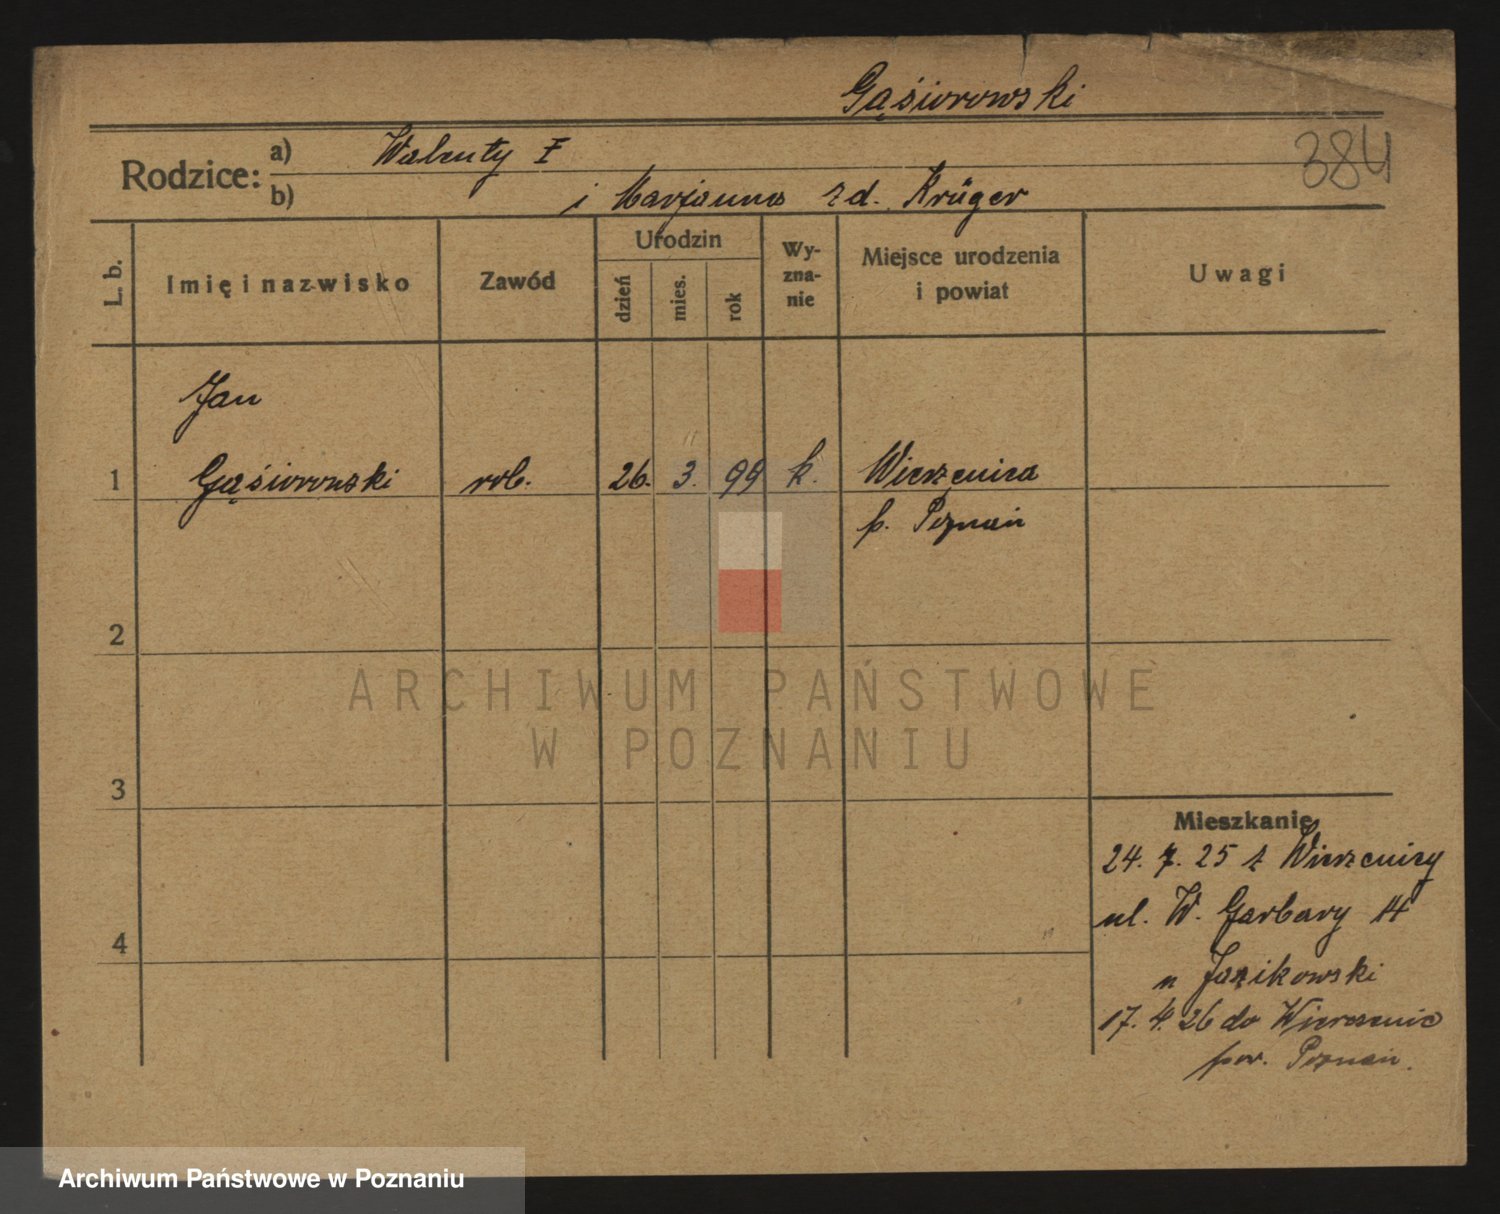 Gąsiorowski
384
Rodzice: a) Walenty I
b) i Marjanna zd. Krüger
L. b. Imię i nazwisko Zawód Urodzin dzień mies. rok Wyznanie Miejsce urodzenia i powiat Uwagi
Jan
1 Gąsiorowski rob. 26. 3. 99 k. Wierzenica
p. Poznań
2
3
4
Mieszkanie
24. 7. 25 z Wierzenicy
ul. W. Garbary 14
u Jazikowski
17. 4. 26 do Wierzenic
pow. Poznań.
ARCHIWUM PAŃSTWOWE
W POZNANIU
Archiwum Państwowe w Poznaniu